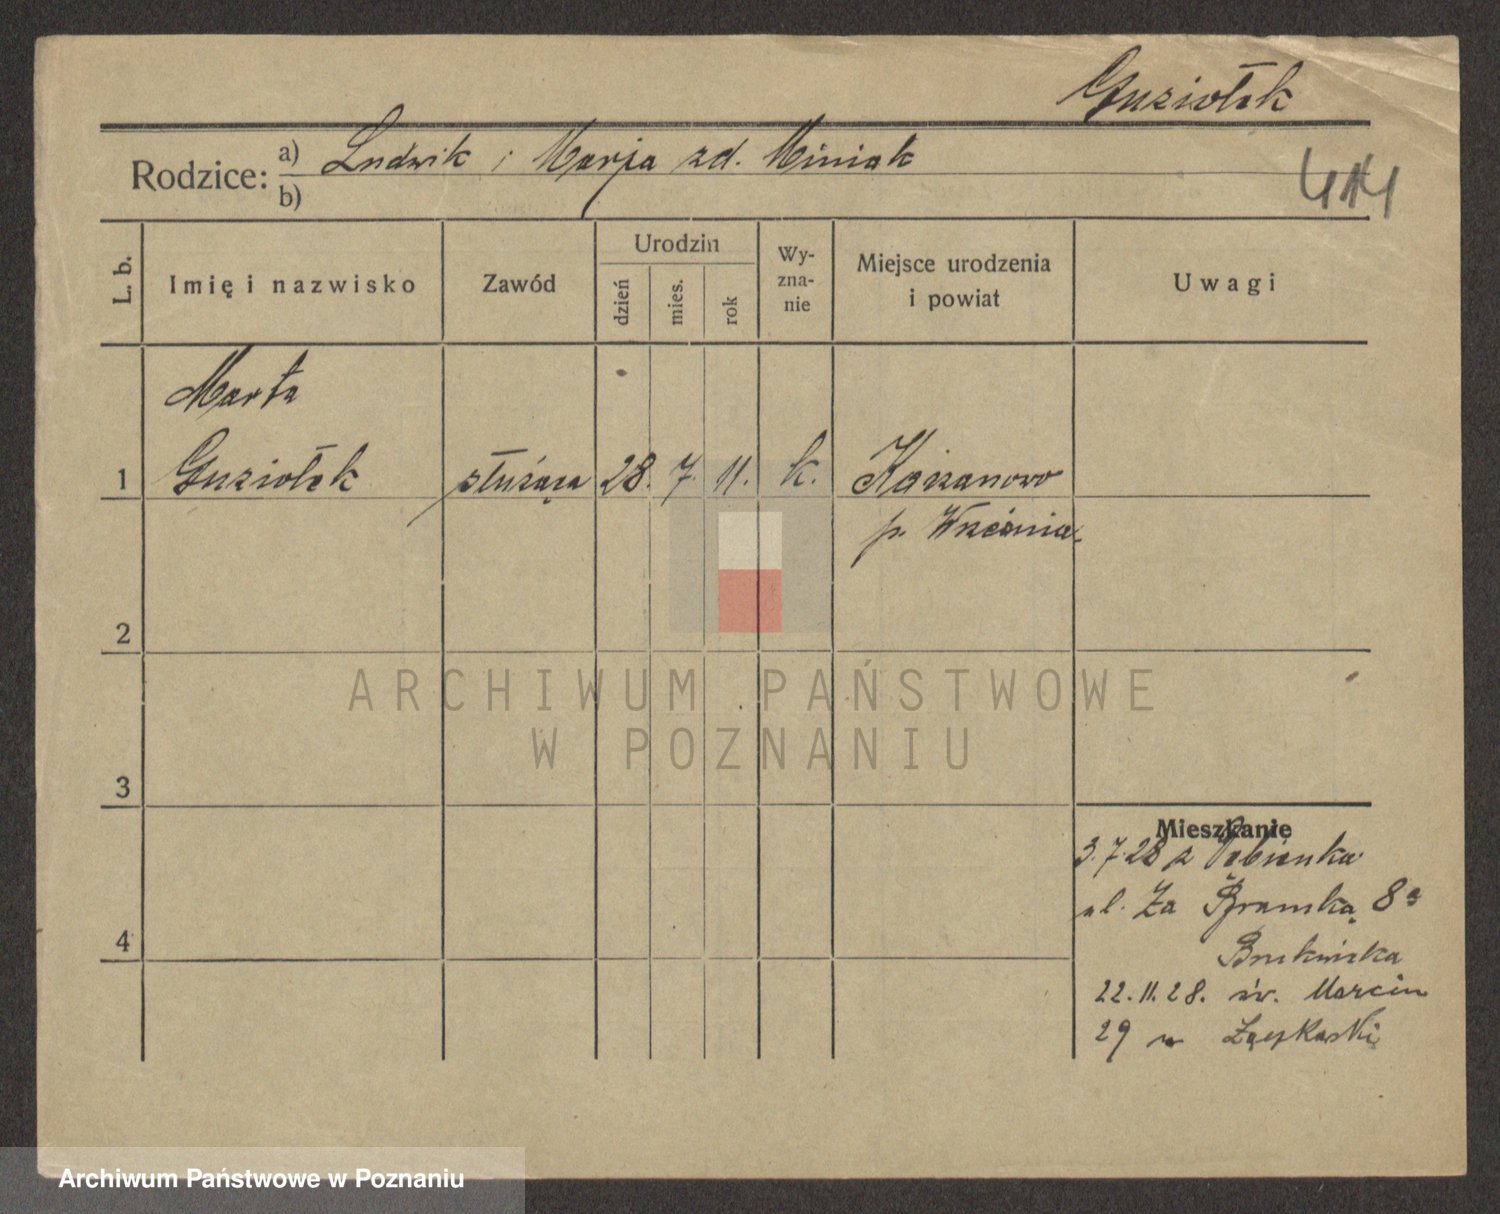 Guziołek
Rodzice: a) Ludwik i Marja zd. Miniak
b)
414
L. b.
Imię i nazwisko
Zawód
Urodzin
dzień
mies.
rok
Wy-
zna-
nie
Miejsce urodzenia
i powiat
Uwagi
Marta
1 Guziołek służąca 28. 7. 11. k. Kaczanowo
p. Września
2
3
4
Mieszkanie
3.7.28 z
ul. Za Bramką 8a
22.11.28. św. Marcin
29 u
ARCHIWUM PAŃSTWOWE
W POZNANIU
Archiwum Państwowe w Poznaniu